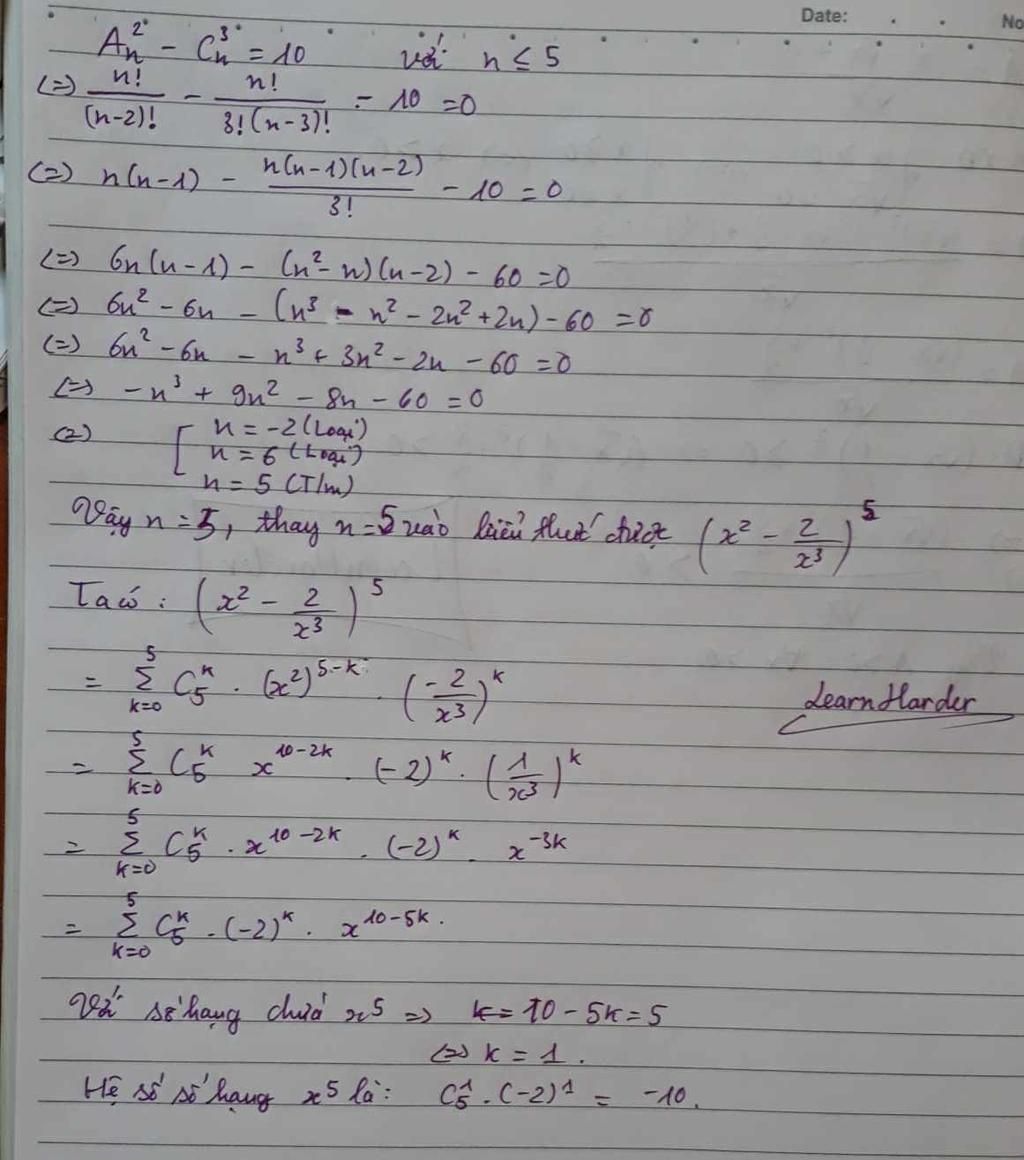 Date: No
Aₙ² - Cₙ³ = 10 với n ≤ 5
(=) n!/(n-2)! - n!/(3!(n-3)!) - 10 = 0
(=) n(n-1) - n(n-1)(n-2)/3! - 10 = 0
(=) 6n(n-1) - (n²-n)(n-2) - 60 = 0
(=) 6n² - 6n - (n³ - n² - 2n² + 2n) - 60 = 0
(=) 6n² - 6n - n³ + 3n² - 2n - 60 = 0
(=) -n³ + 9n² - 8n - 60 = 0
(=) [ n = -2 (Loại)
n = 6 (Loại)
n = 5 (T/m)
Vậy n = 5, thay n = 5 vào biểu thức được (x² - 2/x³)⁵
Ta có : (x² - 2/x³)⁵
= Σ_{k=0}^{5} C₅ᵏ . (x²)^{5-k} . (-2/x³)^k
LearnHarder
= Σ_{k=0}^{5} C₅ᵏ x^{10-2k} . (-2)^k . (1/x³)^k
= Σ_{k=0}^{5} C₅ᵏ . x^{10-2k} . (-2)^k . x^{-3k}
= Σ_{k=0}^{5} C₅ᵏ . (-2)^k . x^{10-5k} .
Với số hạng chứa x⁵ => k = 10 - 5k = 5
(=) k = 1 .
Hệ số số hạng x⁵ là: C₅¹ . (-2)¹ = -10.